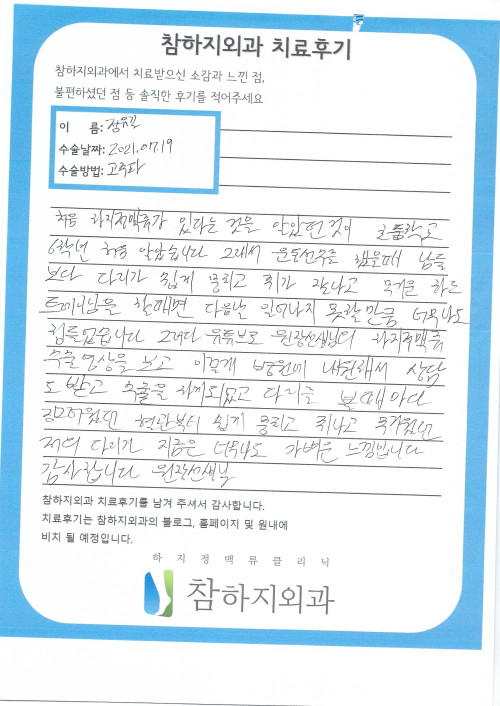 참하지외과 치료후기
참하지외과에서 치료받으신 소감과 느낀 점,
불편하셨던 점 등 솔직한 후기를 적어주세요
이 름:
수술날짜: 2021.07.19
수술방법: 고주파
처음 하지정맥류가 있다는 것을 알았던것이 초등학교
6학년 처음 알았습니다 그래서 운동선수를 했을때 남들
보다 다리가 쉽게 뭉치고 쥐가 잘나고 무거운 하드
트레이닝을 할때면 다음날 일어나지 못할만큼 너무나도
힘들었습니다 그러다 유튜브로 원장선생님의 하지정맥류
수술영상을 보고 이렇게 병원에 내원해서 상담
도 받고 수술을 하게되었고 다리를 볼때마다
혈관부터 쉽게 뭉치고 쥐나고 무거웠던
저의 다리가 지금은 너무나도 가벼운 느낌입니다
감사합니다 원장선생님
참하지외과 치료후기를 남겨 주셔서 감사합니다.
치료후기는 참하지외과의 블로그, 홈페이지 및 원내에
비치 될 예정입니다.
하지정맥류클리닉
참하지외과